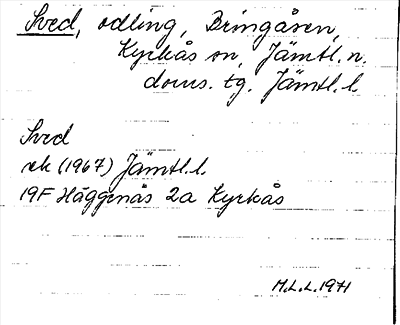 Sved, odling, Bringåsen,
Kyrkås sn, Jämtl. n.
doms. tg. Jämtl. l.
Sved
ek (1967) Jämtl. l.
19F Häggenås 2a Kyrkås
M.L.L. 1971